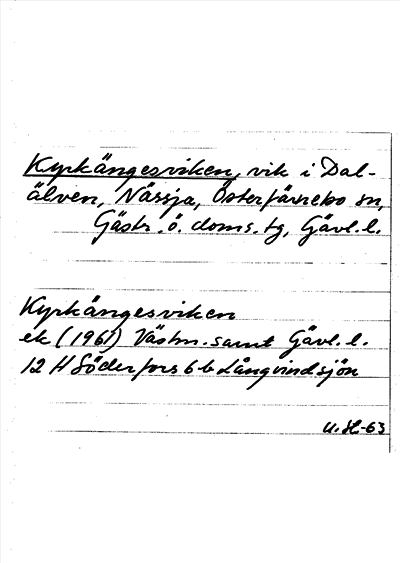 Kyrkängesviken, vik i Dal-
älven, Nässja, Österfärnebo sn,
Gästr. ö. doms. tg, Gävl. l.
Kyrkängesviken
ek (1961) Västm. samt Gävl. l.
12 H Söderfors 6 b Långvindsjön
U. H-63